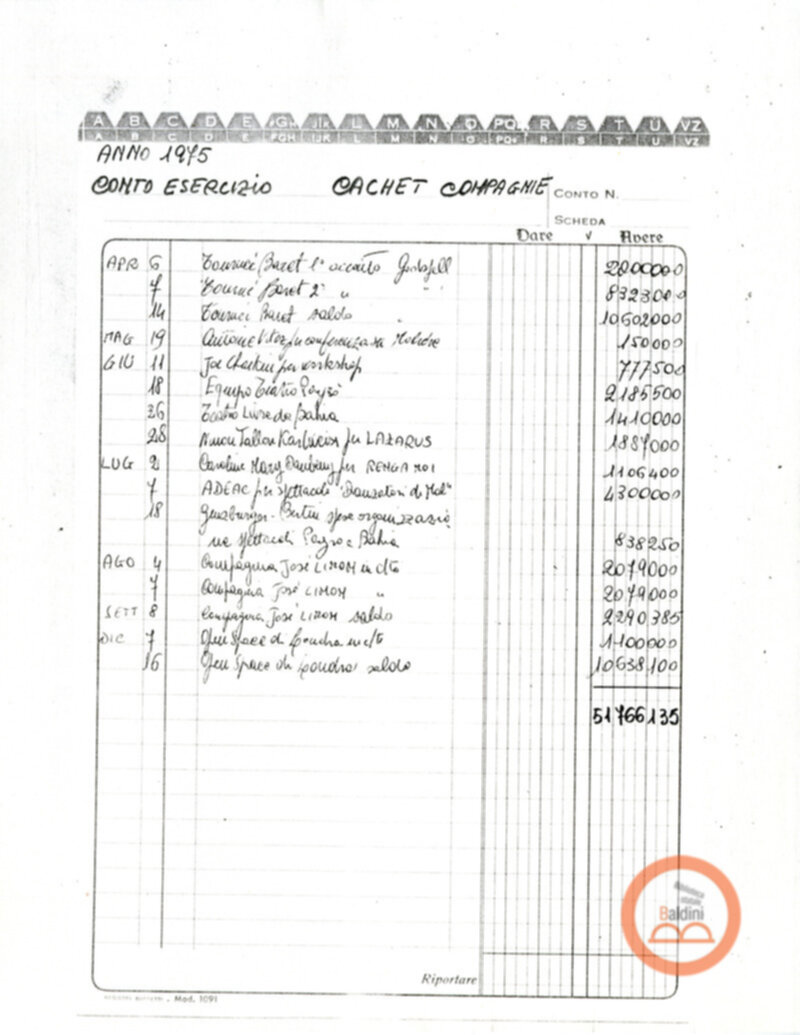 A B C D E FGH IJK L M N O PQ R S T U VZ
A B C D E FGH IJK L M N O PQ R S T U VZ
ANNO 1975
CONTO ESERCIZIO CACHET COMPAGNIE CONTO N.
SCHEDA
Dare √ Avere
APR 6 Tourneé Baret 1° acconto 2800000
7 Tourneé Baret 2° " " 8323000
14 Tourneé Baret saldo " 10602000
MAG 19 Antoine Vitez per conferenza su Molière 150000
GIU 11 Joe Chaikin per workshop 777500
18 Equipo Teatro Payró 2185500
26 Teatro Livre da Bahia 1410000
28 per LAZARUS 1887000
LUG 2 Caroline Mary per RENGA MOI 1106400
7 ADEAC per spettacoli "Danzatori di Mal" 4300000
18 Ginzburger - Bertini spese organizzazio
ne spettacoli Payro e Bahia 838250
AGO 4 Compagnia José LIMON in c/to 2079000
7 Compagnia José LIMON " 2079000
SETT 8 Compagnia José LIMON saldo 2290385
DIC 7 Open Space di Londra in c/to 1100000
16 Open Space di Londra saldo 10638100
51766135
Riportare
Mod. 1091
Biblioteca
statale
Baldini